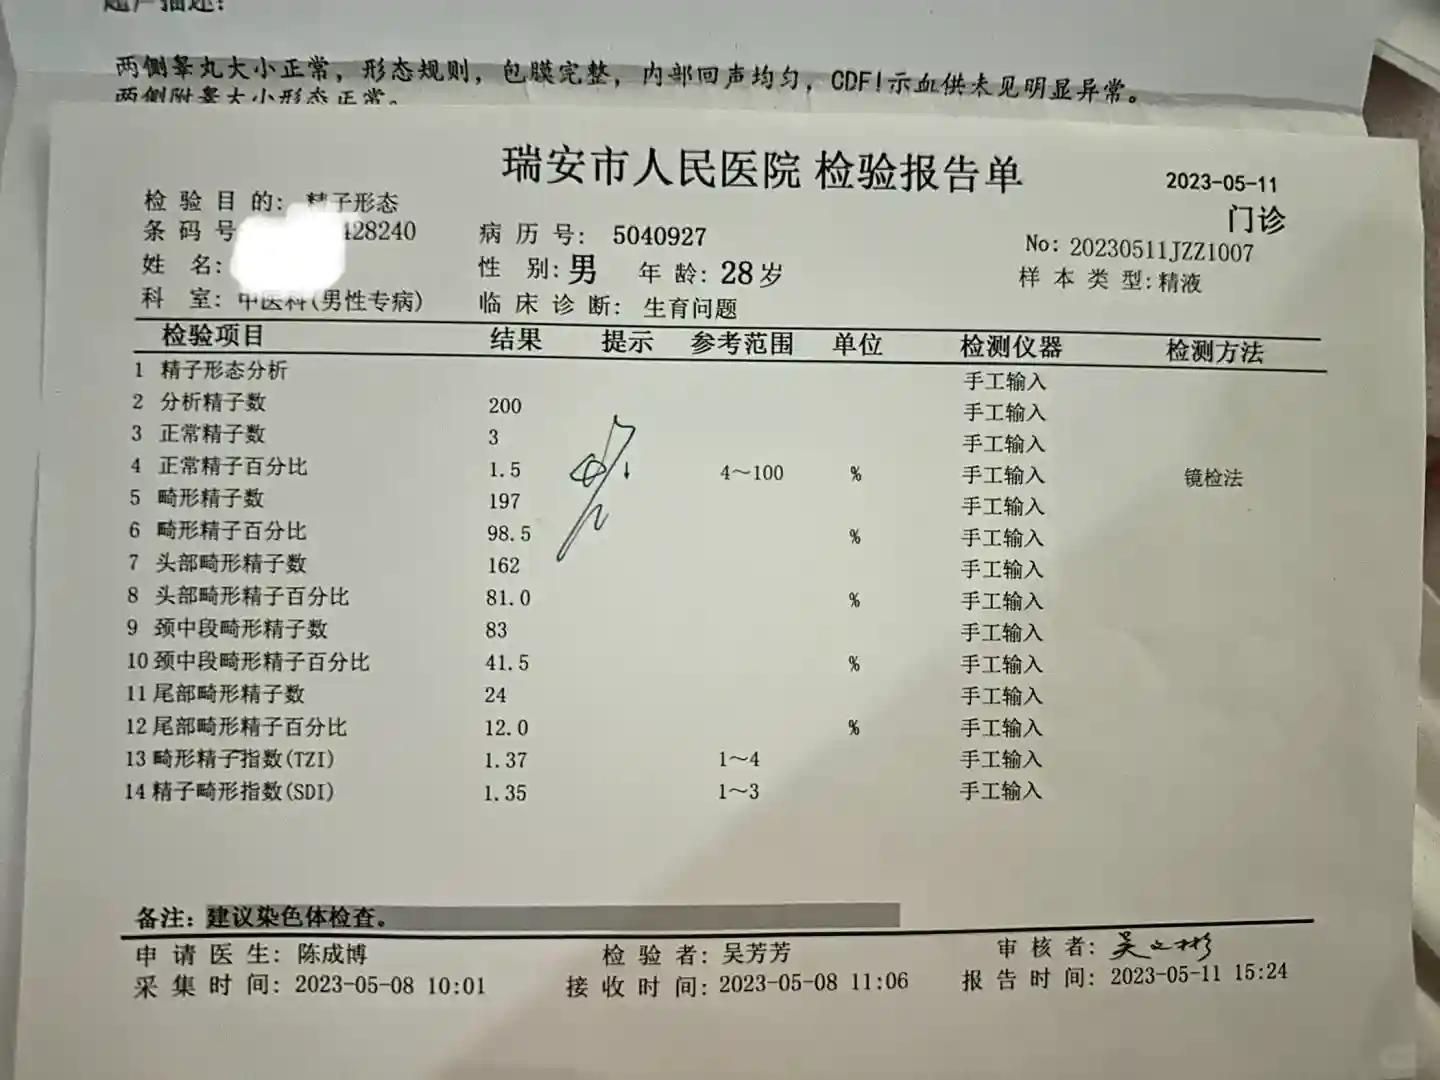 超声描述:
两侧睾丸大小正常，形态规则，包膜完整，内部回声均匀，CDFI示血供未见明显异常。
两侧附睾大小形态正常。
瑞安市人民医院 检验报告单
2023-05-11
门诊
检 验 目 的: 精子形态
条 码 号 428240
病 历 号: 5040927
No: 20230511JZZ1007
姓 名:
性 别: 男 年 龄: 28岁
样 本 类 型: 精液
科 室: 中医科(男性专病)
临 床 诊 断: 生育问题
检验项目 结果 提示 参考范围 单位 检测仪器 检测方法
1 精子形态分析 手工输入
2 分析精子数 200 手工输入
3 正常精子数 3 手工输入
4 正常精子百分比 1.5 ↓ 4～100 % 手工输入 镜检法
5 畸形精子数 197 手工输入
6 畸形精子百分比 98.5 % 手工输入
7 头部畸形精子数 162 手工输入
8 头部畸形精子百分比 81.0 % 手工输入
9 颈中段畸形精子数 83 手工输入
10 颈中段畸形精子百分比 41.5 % 手工输入
11 尾部畸形精子数 24 手工输入
12 尾部畸形精子百分比 12.0 % 手工输入
13 畸形精子指数(TZI) 1.37 1～4 手工输入
14 精子畸形指数(SDI) 1.35 1～3 手工输入
备注: 建议染色体检查。
申 请 医 生: 陈成博 检 验 者: 吴芳芳 审 核 者: 吴文彬
采 集 时 间: 2023-05-08 10:01 接 收 时 间: 2023-05-08 11:06 报 告 时 间: 2023-05-11 15:24